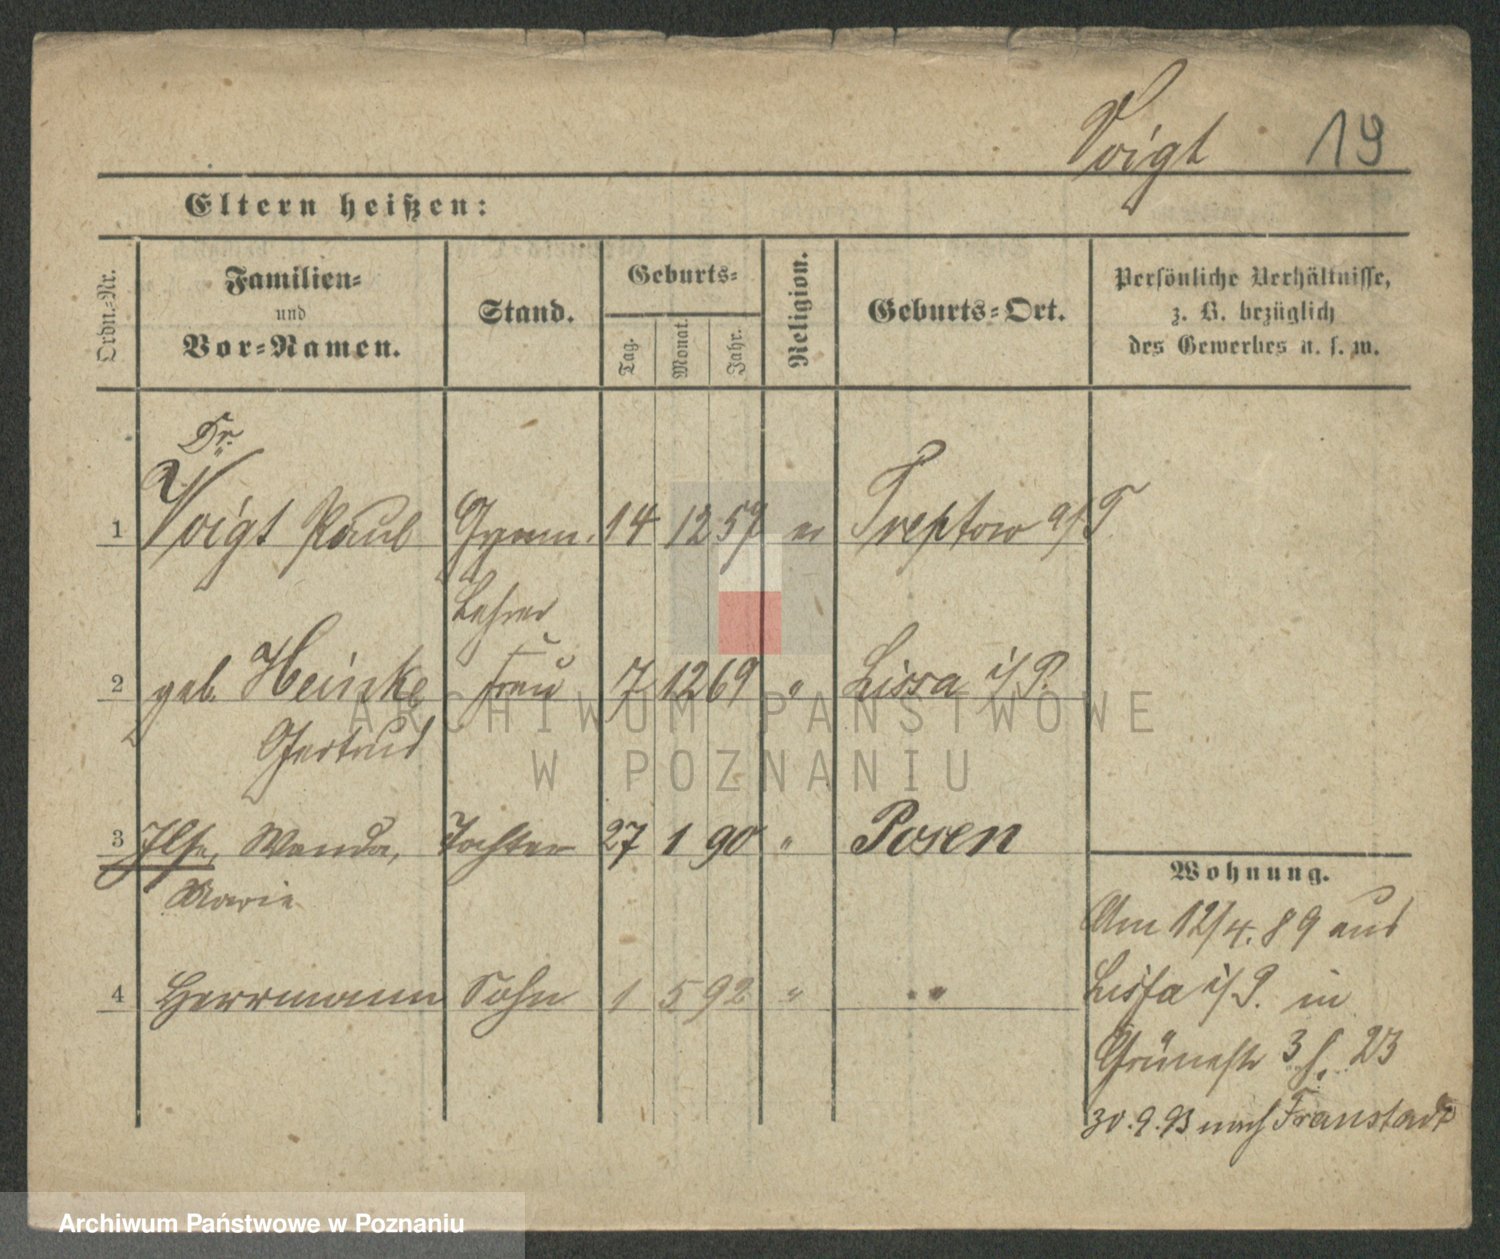 Voigt 19
Eltern heißen:
Ordn.-Nr.
Familien-
und
Vor-Namen.
Stand.
Geburts-
Tag.
Monat.
Jahr.
Religion.
Geburts-Ort.
Persönliche Verhältnisse,
z. B. bezüglich
des Gewerbes u. s. w.
Dr.
1 Voigt Paul Gymn. 14 12 57 ev Treptow a/T
Lehrer
2 geb. Heinke Frau 7 12 69 " Lissa i/P.
Gertrud
3 Ilse, Wanda, Tochter 27 1 90 " Posen
Marie
4 Herrmann Sohn 1 5 92 " "
Wohnung.
Am 12/4. 89 aus
Lissa i/P. in
Grünestr 3 23
30.9.93 nach Fraustadt
ARCHIWUM PAŃSTWOWE
W POZNANIU
Archiwum Państwowe w Poznaniu